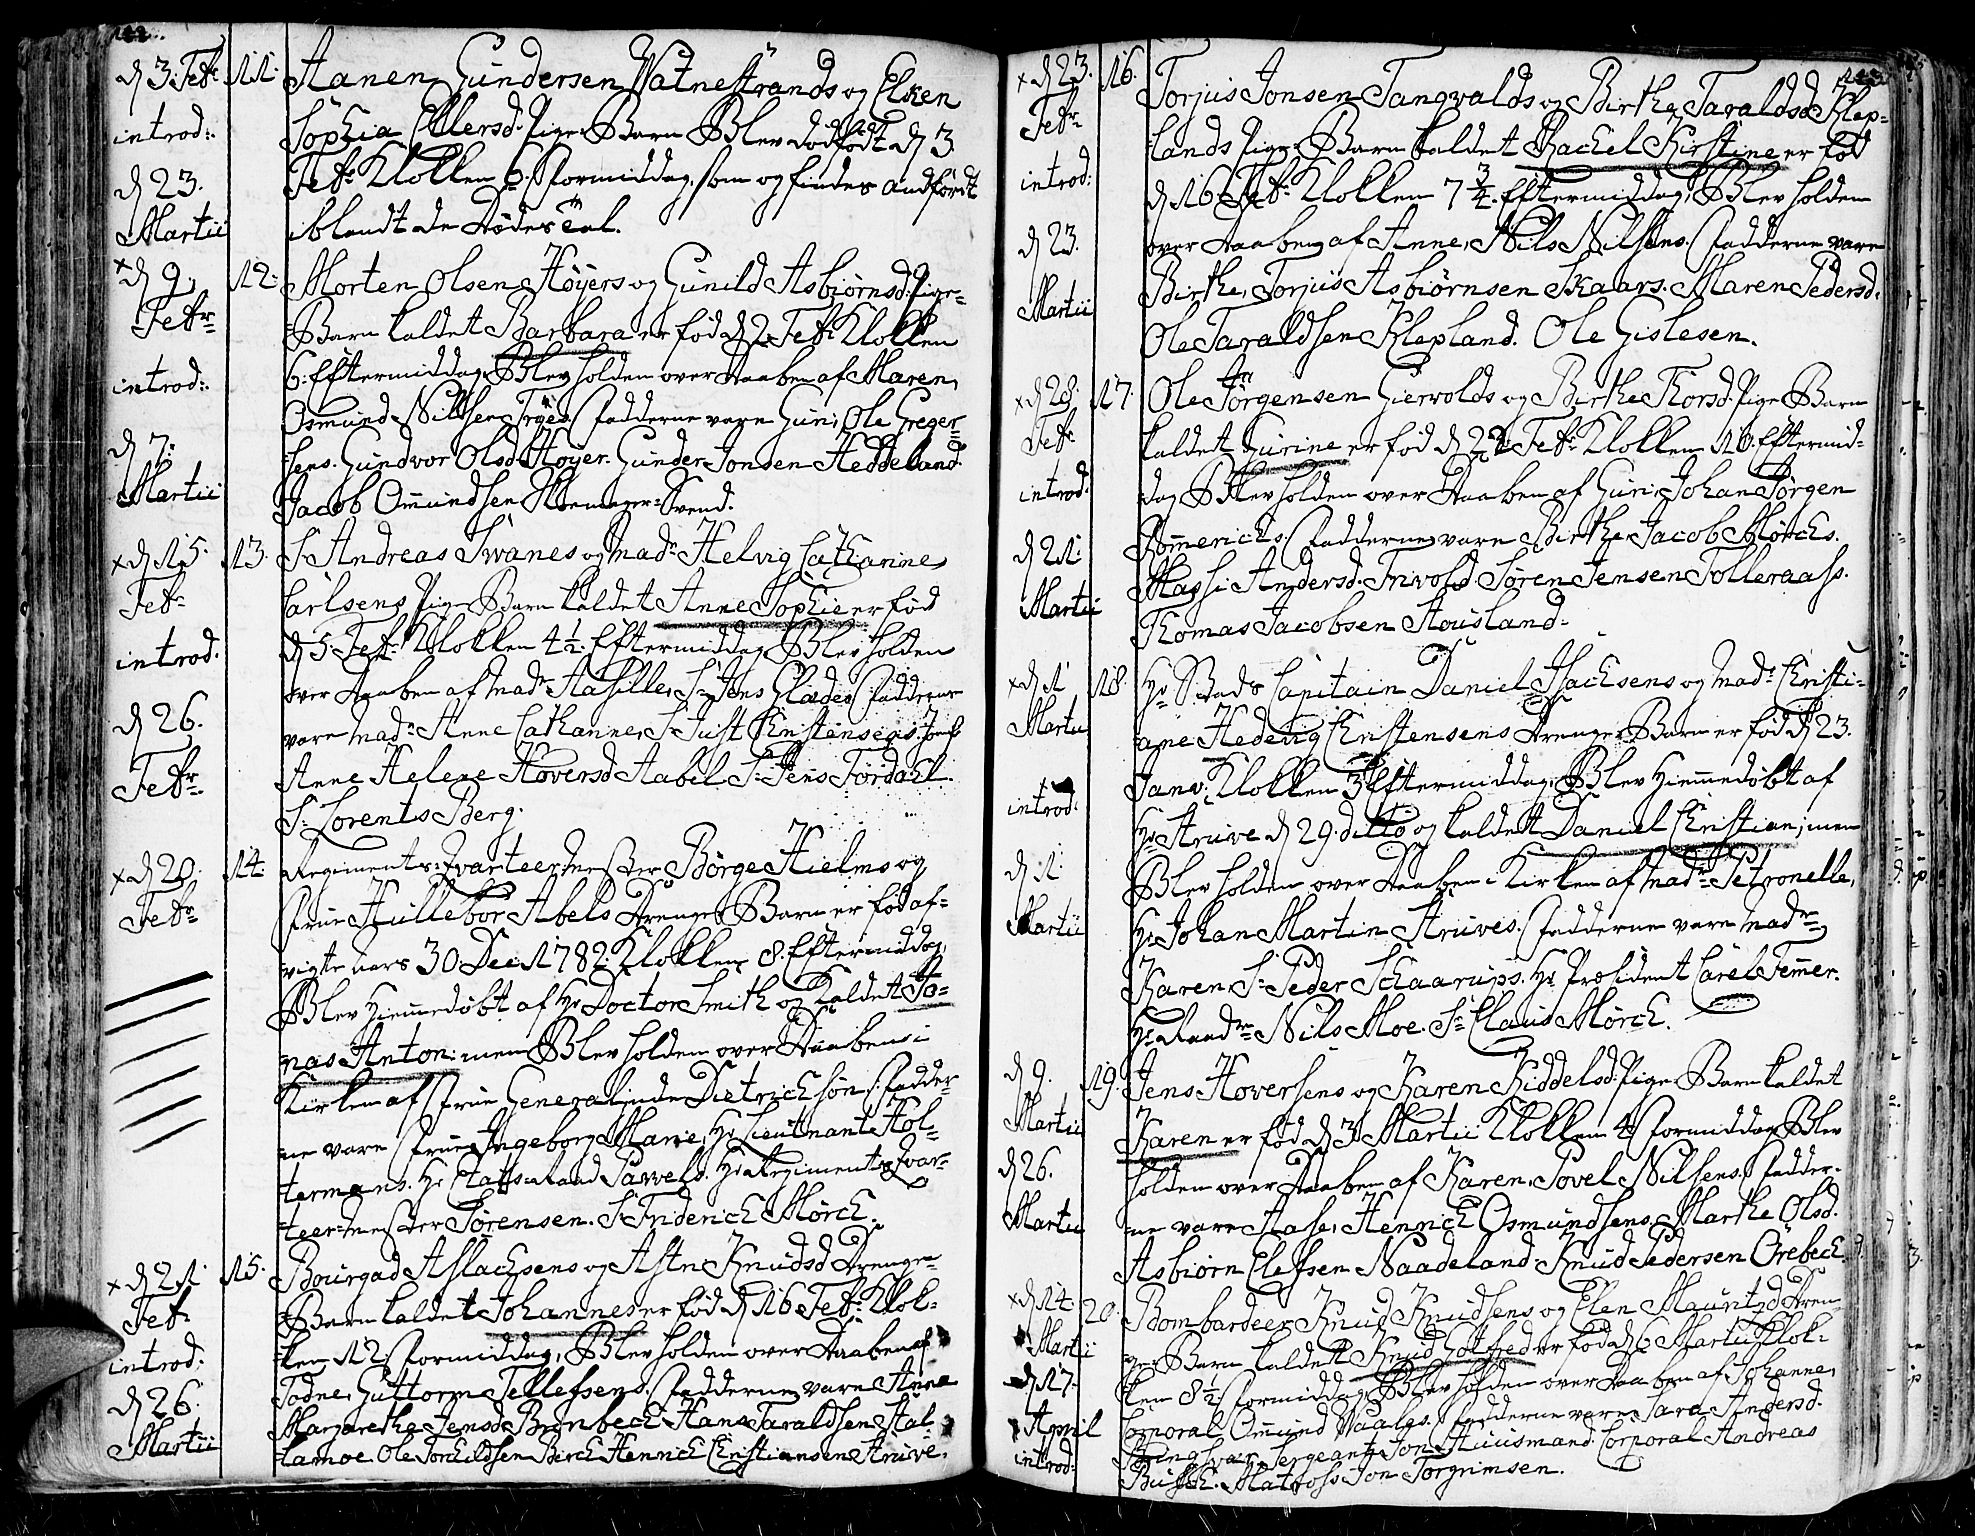 122.
d 3. Febr
introd:
d 23.
Martii
11. Aanen Gundersen Watnestrands og Elken
Sophia Ellersd. Pige-Barn Blev dödfödt d 3
Febr. Klokken 6. Formiddag, som og findes anfördt
iblandt de Dödes Tal.
x d 9.
Febr
introd:
d 7.
Martii
12. Morten Olsen Höyers og Gunild Asbiörnsd. Pige-
Barn kaldet Barbara er föd d 2 Febr Klokken
6. Eftermiddag, Blev holden over Daaben af Maren,
Osmund Nilsen Fadderne vare Guri, Ole Greger-
sens. Gundvor Olsd. Höyer. Gunder Jonsen Heddeland.
Jacob Omundsen Svend.
x d 15.
Febr
introd.
d 26.
Febr.
13. Sr Andreas Swanes og Madr Helvig Catharine
Carlsens Pige-Barn kaldet Anne Sophie er föd
d 5. Febr Klokken 4 1/2. Eftermiddag, Blev holden
over Daaben af Madr Aasille, Sr Jens Gladës Fadderne
vare Madr Anne Catharine, Sr Just Christensens. Jomf
Anne Helene Höversd Aabel Sr Jens Fördahl.
Sr Lorents Berg.
x d 20.
Febr
14. Regiments-Qvarteermester Börge Hielms og
Frue Hillebor Abels Drenge-Barn er föd af-
vigte aars 30 Dec: 1782. Klokken 8. Eftermiddag,
Blev Hiemmedöbt af Hr Doctor Smith og kaldet Jo-
nas Anton: men Blev holden over Daaben i
Kirken af Frue Generalinde Dietrichson. Fadder-
ne vare Frue Ingeborg Marie, Hr Lieutnant Hol-
termans. Hr Etatsraad Pawels. Hr Regiments-Qvar-
teermester Sörensen. Sr Friderich Mörch.
x d 21
Febr
introd:
d 26.
Martii
15. Bourgad Aslachsens og Asta Knudsd Drenge-
Barn kaldet Johannes er föd d 16 Febr Klok-
ken 12. Formiddag, Blev holden over Daaben af
Todne, Guttorm Tellefsens. Fadderne vare Anne
Margaretha Jensd. Brönbech Hans Taraldsen Stal-
lamoe. Ole Torkildsen Birch Henrich Christiansen Struve.
123.
x d 23.
Febr
introd:
d 23.
Martii
16. Torjus Jonsen Tangvalds og Birthe Taraldsd Klep-
lands Pige-Barn kaldet Rachel Kirstine er föd
d 16 Febr Klokken 7 3/4. Eftermiddag, Blev holden
over Daaben af Anne, Nils Nilsens. Fadderne vare
Birthe, Torjus Asbiörnsen Skaars. Maren Pedersd.
Ole Taraldsen Klepland. Ole Gislesen.
x d 28.
Febr
introd.
d 21.
Martii
17. Ole Jörgensen Gierwolds og Birthe Thorsd. Pige-Barn
kaldet Gurine er föd d 22 Febr Klokken 10. Eftermid-
dag Blev holden over Daaben af Guri, Johan Jörgen
Römerichs. Fadderne vare Birthe, Jacob Mörchs.
Massi Andersd. Trivold Sören Jensen Tolleraass.
Thomas Jacobsen Stousland.
x d 1
Martii
introd:
d 1
Martii
18. Hr Capitain Daniel Isachsens og Madr Christi-
ane Hedevig Christensens Drenge-Barn er föd d 23.
Janv. Klokken 3 Eftermiddag, Blev Hiemmedöbt af
Hr Struve d 29. ditto og kaldet Daniel Christian; men
Blev holden over Daaben i Kirken af Madr Petronelle,
Hr Johan Martin Struves. Fadderne vare Madr
Karen, Sr Peder Schaarups. Hr Præsident Carel Femer.
Hr Raadm Nils Moe. Sr Claus Mörch.
d 9.
Martii
d 26.
Martii
19. Jens Hoversens og Karen Kiddelsd. Pige-Barn kaldet
Karen er föd d 3 Martii Klokken 4 Formiddag Blev
holden over Daaben af Karen, Povel Nilsens. Fadder-
ne vare Aase, Henrich Osmundsens. Marthe Olsd.
Asbiörn Elefsen Naadeland. Knud Pedersen Örebech.
x d 14.
Martii
d 17.
April
introd:
20. Bombardeer Knud Knudsens og Elen Mauritzd Dren-
ge-Barn kaldet Knud Gotfred er föd d 6 Martii Klok-
ken 8 1/2. Formiddag, Blev holden over Daaben af Johanne,
Corporal Omund Waalgs. Fadderne vare Sara Andersd.
Sergeant Jon Huusmand. Corporal Andreas
Busch. Matros Jon Torgrimsen.